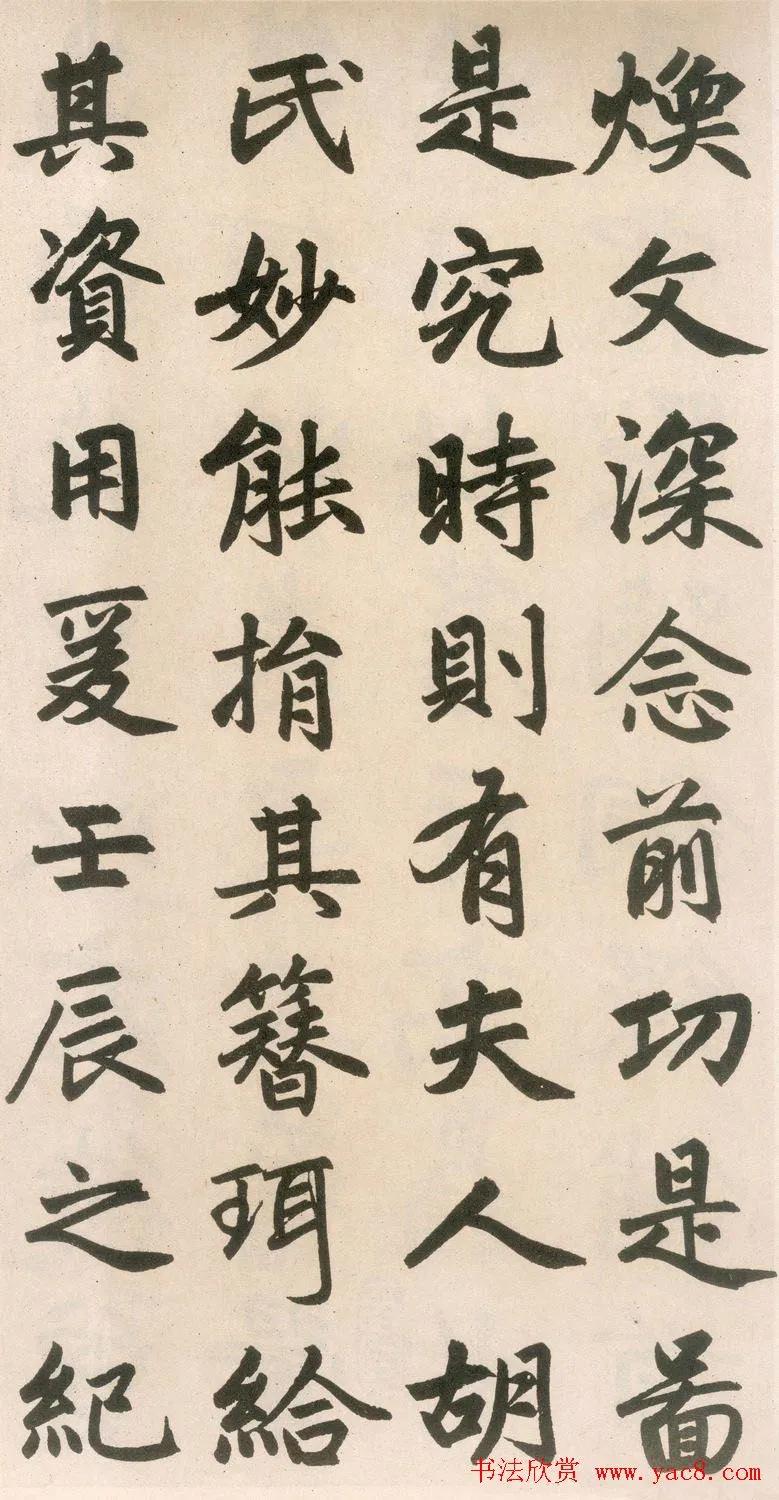 煥文深念前功是啚
是究時則有夫人胡
氏妙能捐其簪珥給
其資用爰壬辰之紀
书法欣赏 www.yac8.com